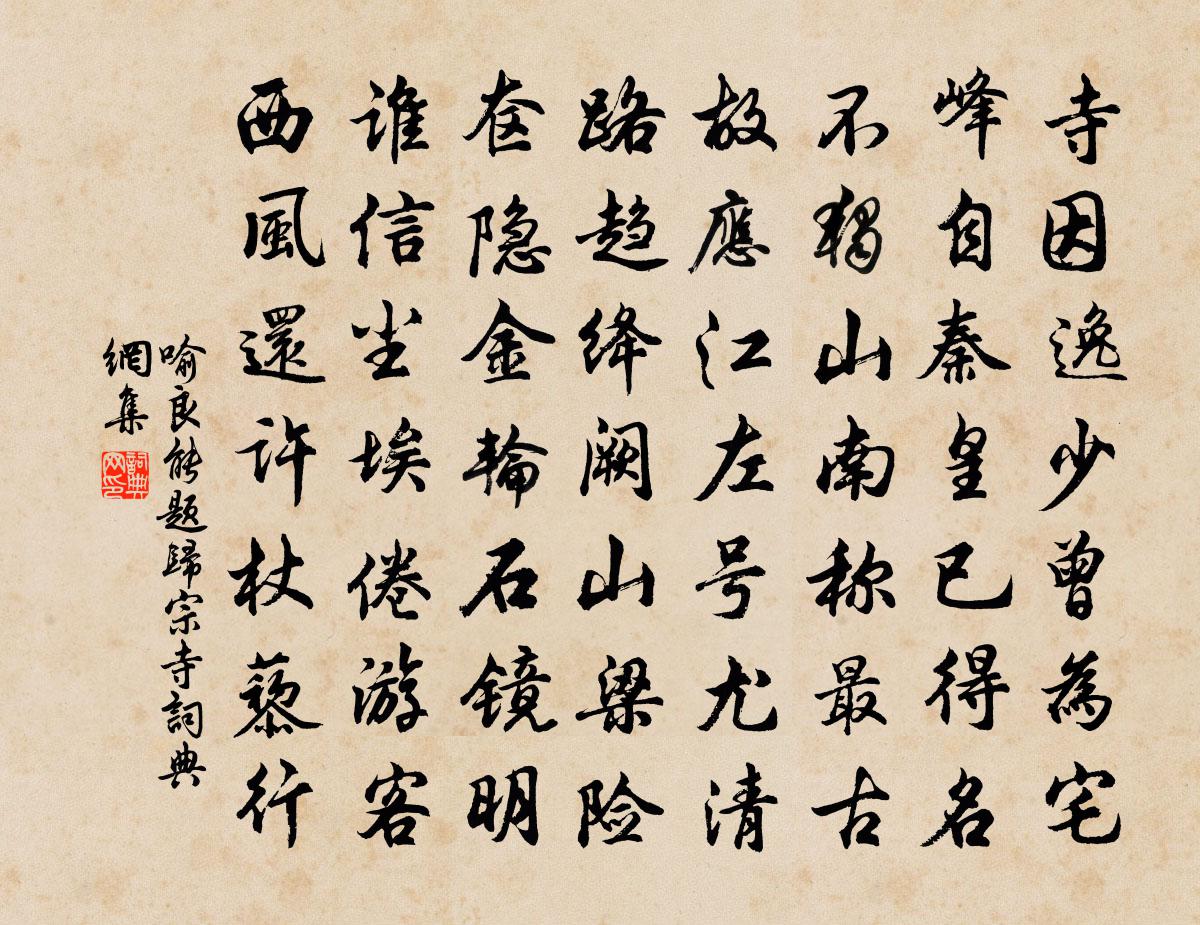 寺因逸少曾為宅
峰自秦皇已得名
不獨山南称最古
故應江左号尤清
路趋绛阙山梁险
奁隐金輪石镜明
谁信尘埃倦游客
西風還许杖藜行
喻良能题歸宗寺詞典
網集
詞典
网印